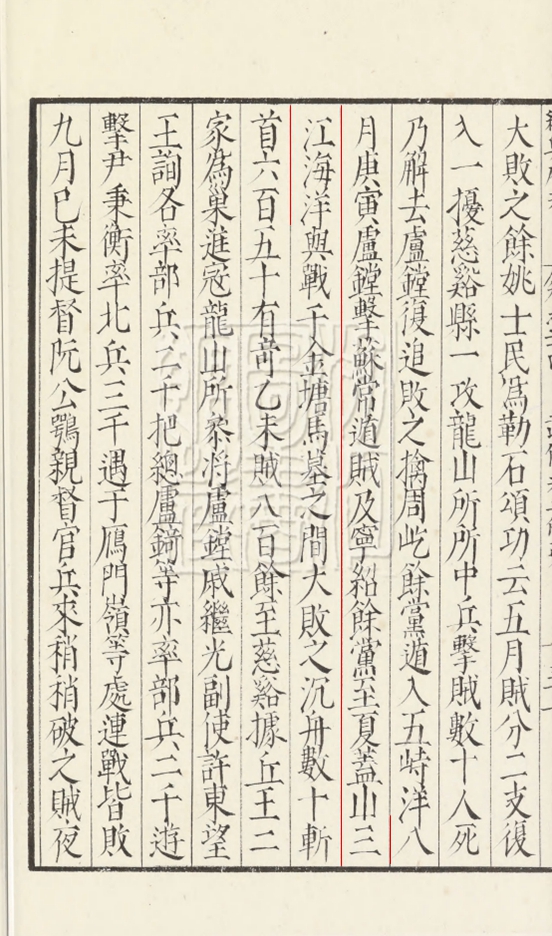 大敗之餘姚士民爲勒石頌功云五月賊分二支復
入一擾慈谿縣一攻龍山所所中兵擊賊數十人死
乃解去盧鏜復追敗之擒周屹餘黨遁入五峙洋八
月庚寅盧鏜擊蘇常遁賊及寧紹餘黨至夏蓋山三
江海洋與戰于金塘馬墓之間大敗之沉舟數十斬
首六百五十有奇乙未賊八百餘至慈谿據丘王二
家為巢進寇龍山所叅將盧鏜戚繼光副使許東望
王詢各率部兵二千把總盧錡等亦率部兵二千遊
擊尹秉衡率北兵三千遇于鴈門嶺等處連戰皆敗
九月己未提督阮公鶚親督官兵來稍稍破之賊夜